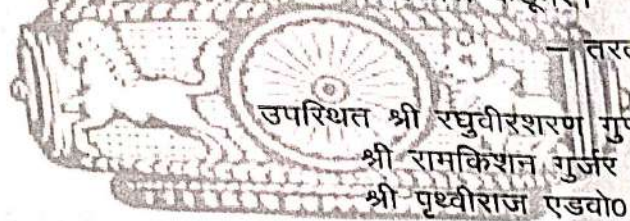 — तरत
उपस्थित श्री रघुवीरशरण गुप
श्री रामकिशन गुर्जर
श्री पृथ्वीराज एडवो0